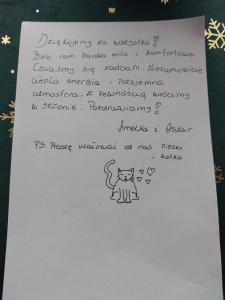 Dziękujemy za wszystko!
Było nam bardzo miło i komfortowo
Czuliśmy się zadbani. Niesamowicie
ciepła energia i przyjemna
atmosfera. Z pewnością wrócimy
w sezonie. Pozdrawiamy!
Amelka i Oskar
PS. Proszę ucałować od nas pieski
i kotka